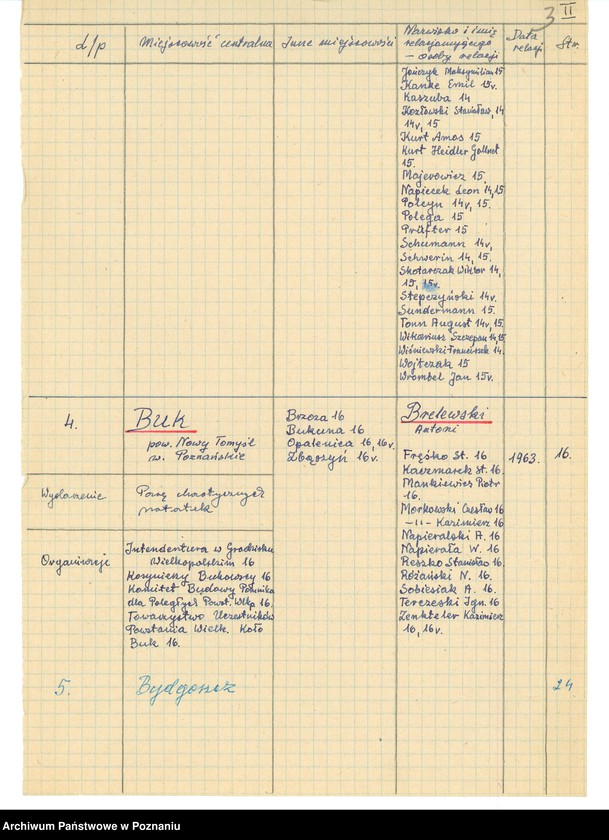 3 II
d/p Miejscowość centralna Inne miejscowości Nazwisko i imię relacjonującego – osoby relacji Data relacji Str.
Jończyk Maksymilian 15
Kanke Emil 15v.
Kaszuba 14
Kozłowski Stanisław, 14
14v, 15
Kurt Amos 15
Kurt Heidler Gollnet
15.
Majerowicz 15.
Napieček Leon 14, 15
Polcyn 14v, 15.
Polega 15
Präfter 15
Schumann 14v,
Schwerin 14, 15.
Skotarczak Wiktor 14,
15, 15v.
Stepczyński 14v.
Sundermann 15.
Tonn August 14v, 15.
Wikariusz Szczepan 14, 15
Wiśniewski Franciszek 14.
Wojtczak 15
Wrombel Jan 15v.
4.
Buk
pow. Nowy Tomyśl
w. Poznańskie
Brzoza 16
Bukuna 16
Opalenica 16, 16v.
Zbąszyń 16v.
Brelewski
Antoni
Frąśko St. 16
Kaczmarek St. 16.
Mankiewicz Piotr
16.
Morkowski Czesław 16
–„– Kazimierz 16
Napieralski A. 16
Napierała W. 16
Reszko Stanisław 16.
Różański N. 16.
Sobiesiak A. 16
Terczeski Ign. 16
Zenkteler Kazimierz
16, 16v.
1963.
16.
Wydarzenie
Parę chaotycznych
notatek
Organizacje
Intendentura w Grodzisku
Wielkopolskim 16
Kosynierzy Bukowscy 16
Komitet Budowy Pomnika
dla Poległych Powst. Wlkp. 16.
Towarzystwo Uczestników
Powstania Wielk. Koło
Buk 16.
5. Bydgoszcz 24
Archiwum Państwowe w Poznaniu